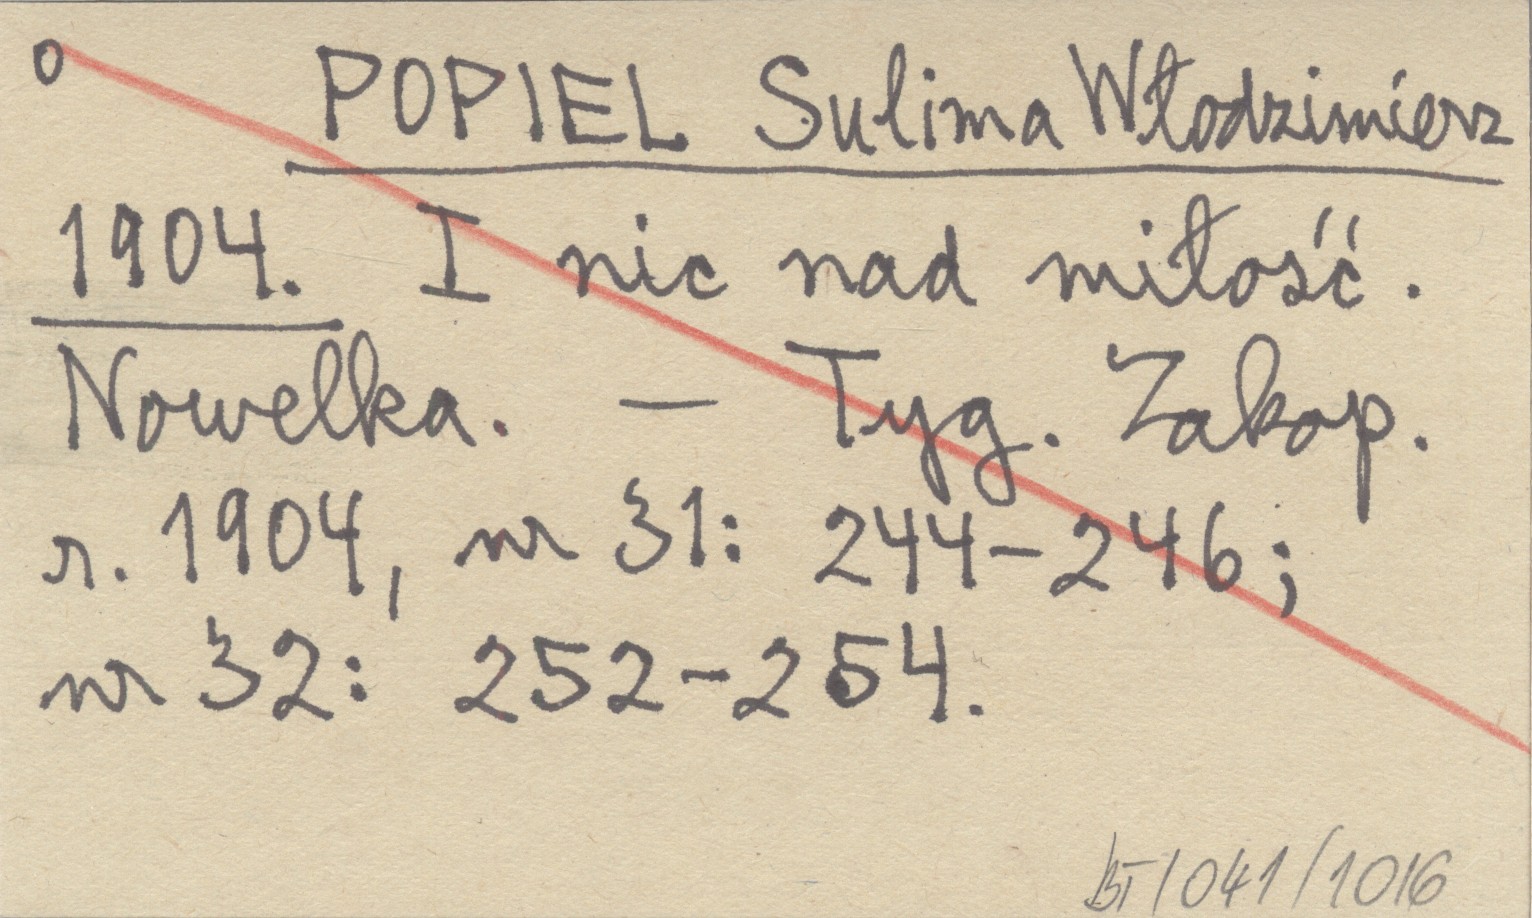 o POPIEL Sulima Włodzimierz
1904. I nic nad miłość.
Nowelka. — Tyg. Zakop.
r. 1904, nr 31: 244-246;
nr 32: 252-254.
BT/041/1016